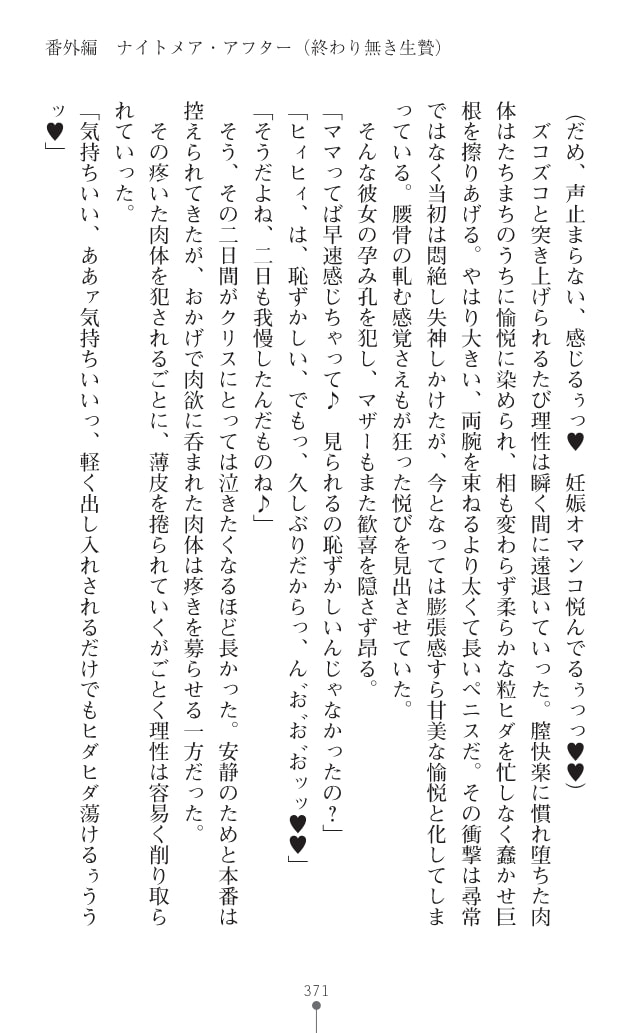 番外編　ナイトメア・アフター（終わり無き生贄）
（だめ、声止まらない、感じるぅっ♥　妊娠オマンコ悦んでるぅっっ♥♥）
　ズコズコと突き上げられるたび理性は瞬く間に遠退いていった。膣快楽に慣れ堕ちた肉
体はたちまちのうちに愉悦に染められ、相も変わらず柔らかな粒ヒダを忙しなく蠢かせ巨
根を擦りあげる。やはり大きい、両腕を束ねるより太くて長いペニスだ。その衝撃は尋常
ではなく当初は悶絶し失神しかけたが、今となっては膨張感すら甘美な愉悦と化してしま
っている。腰骨の軋む感覚さえもが狂った悦びを見出させていた。
　そんな彼女の孕み孔を犯し、マザーもまた歓喜を隠さず昂る。
「ママってば早速感じちゃって♪　見られるの恥ずかしいんじゃなかったの？」
「ヒィヒィ、は、恥ずかしい、でもっ、久しぶりだからっ、ん゛お゛お゛おッッ♥♥」
「そうだよね、二日も我慢したんだものね♪」
　そう、その二日間がクリスにとっては泣きたくなるほど長かった。安静のためと本番は
控えられてきたが、おかげで肉欲に呑まれた肉体は疼きを募らせる一方だった。
　その疼いた肉体を犯されるごとに、薄皮を捲られていくがごとく理性は容易く削り取ら
れていった。
「気持ちいい、ああァ気持ちいいっ、軽く出し入れされるだけでもヒダヒダ蕩けるぅうう
ッ♥」
371